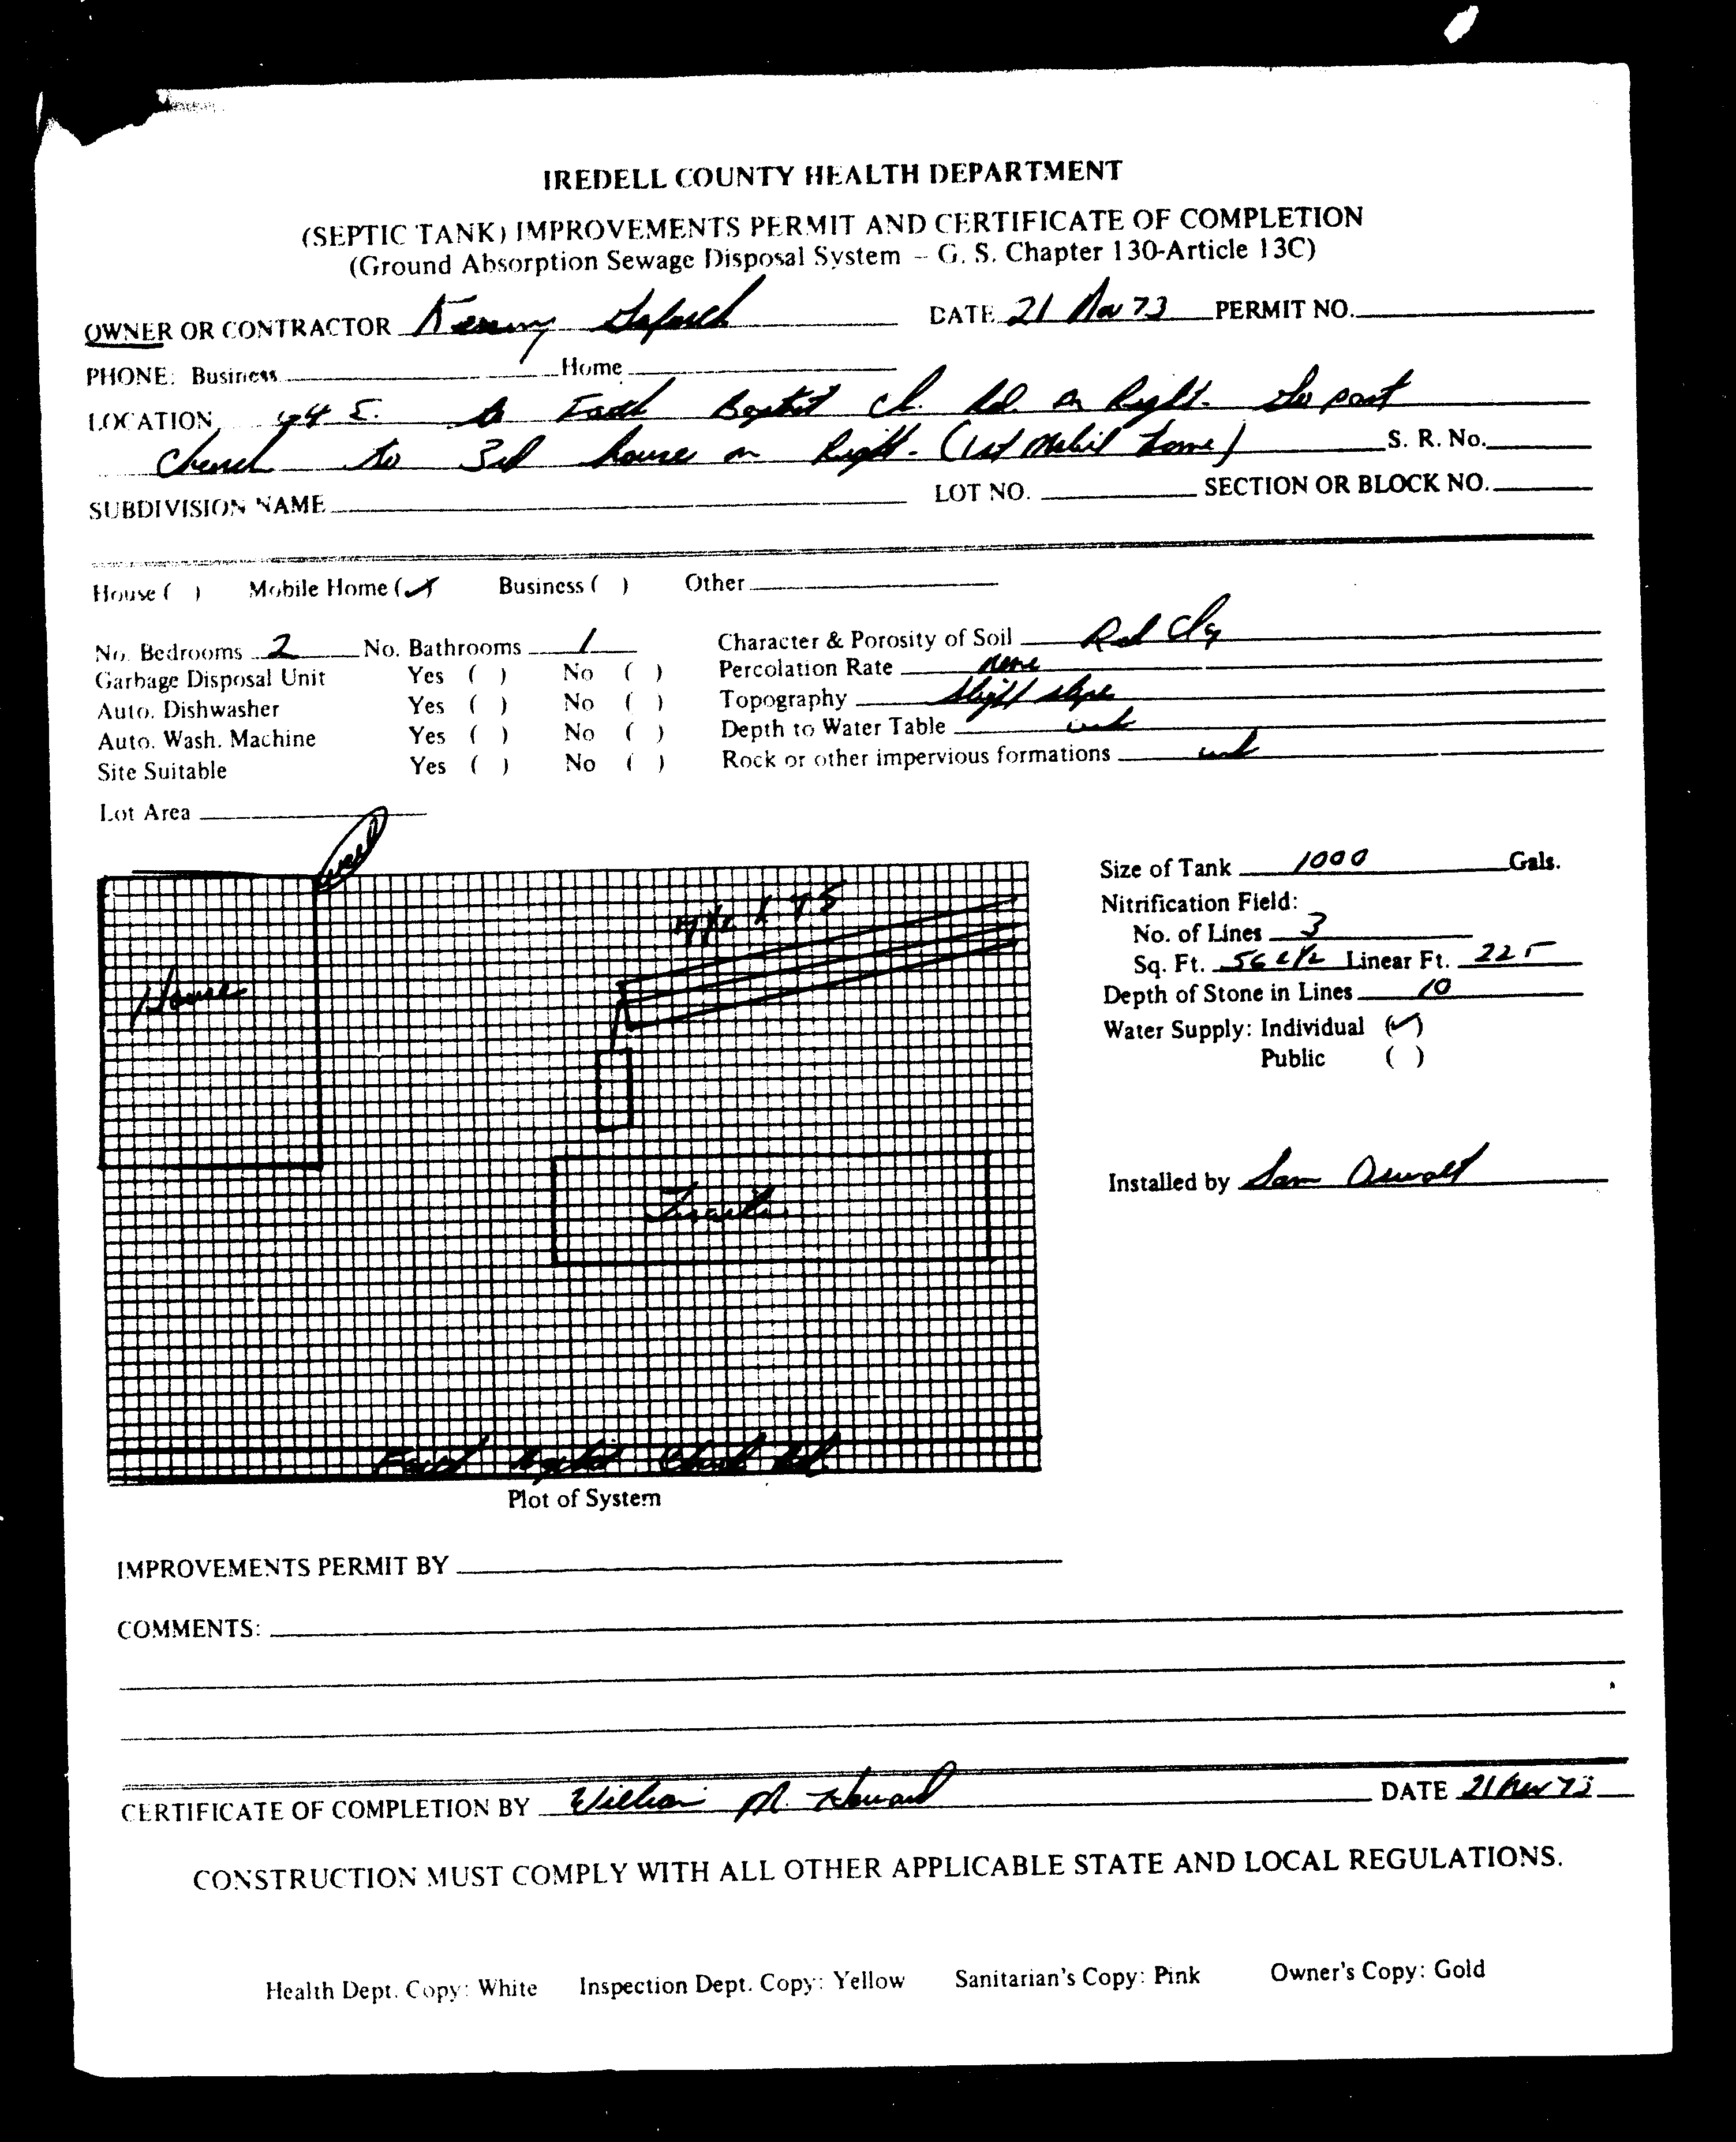 IREDELL COUNTY HEALTH DEPARTMENT
(SEPTIC TANK) IMPROVEMENTS PERMIT AND CERTIFICATE OF COMPLETION
(Ground Absorption Sewage Disposal System – G. S. Chapter 130-Article 13C)
OWNER OR CONTRACTOR Kenny DATE 21 Nov 73 PERMIT NO.
PHONE: Business Home
LOCATION E. to Faith Baptist Ch. Rd. on Right. Go past
Church to 3rd house on Right. (1st Mobil home) S. R. No.
SUBDIVISION NAME LOT NO. SECTION OR BLOCK NO.
House ( ) Mobile Home (✓) Business ( ) Other
No. Bedrooms 2 No. Bathrooms 1 Character & Porosity of Soil Red Clay
Garbage Disposal Unit Yes ( ) No ( ) Percolation Rate none
Auto. Dishwasher Yes ( ) No ( ) Topography slight slope
Auto. Wash. Machine Yes ( ) No ( ) Depth to Water Table unk
Site Suitable Yes ( ) No ( ) Rock or other impervious formations unk
Lot Area
Well
Size of Tank 1000 Gals.
Nitrification Field:
X 75
No. of Lines 3
Sq. Ft. 562 1/2 Linear Ft. 225
House
Depth of Stone in Lines 10
Water Supply: Individual (✓)
Public ( )
Installed by Sam Oswalt
Trailer
Faith Baptist Church Rd.
Plot of System
IMPROVEMENTS PERMIT BY
COMMENTS:
CERTIFICATE OF COMPLETION BY William M. Howard DATE 21 Nov 73
CONSTRUCTION MUST COMPLY WITH ALL OTHER APPLICABLE STATE AND LOCAL REGULATIONS.
Health Dept. Copy: White Inspection Dept. Copy: Yellow Sanitarian's Copy: Pink Owner's Copy: Gold